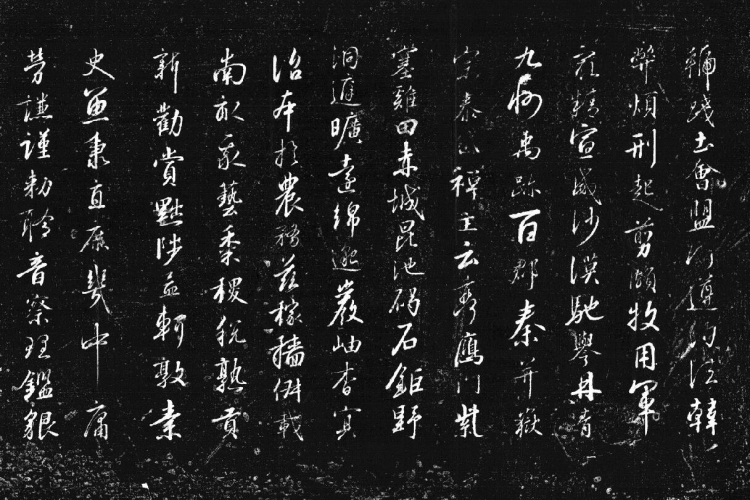 虢踐土會盟何遵約法韓
弊煩刑起翦頗牧用軍
最精宣威沙漠馳譽丹青
九州禹跡百郡秦并嶽
宗泰岱禪主云亭鴈門紫
塞雞田赤城昆池碣石鉅野
洞庭曠遠綿邈巖岫杳冥
治本於農務茲稼穡俶載
南畝我藝黍稷稅熟貢
新勸賞黜陟孟軻敦素
史魚秉直庶幾中庸
勞謙謹勅聆音察理鑑貌